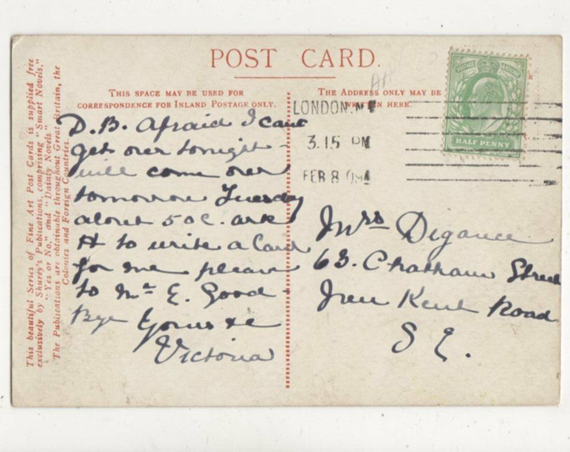 POST CARD.
THIS SPACE MAY BE USED FOR
CORRESPONDENCE FOR INLAND POSTAGE ONLY.
THE ADDRESS ONLY MAY BE
HERE.
This beautiful Series of Fine Art Post Cards is supplied free
exclusively by Shurey's Publications, comprising "Smart Novels,"
"Yes or No," and "Dainty Novels"
The Publications are obtainable throughout Great Britain, the
Colonies and Foreign Countries.
LONDON. N
3.15 PM
FEB 8 09
HALF PENNY
D.B. Afraid I cant
get over tonight -
will come over
tomorrow Tuesday
about 5 oc. ask
H to write a Card
for me please
to Mr E. Good
Bye Yours &c
Victoria
Mrs Digance
63. Chatham Street
New Kent Road
S E.